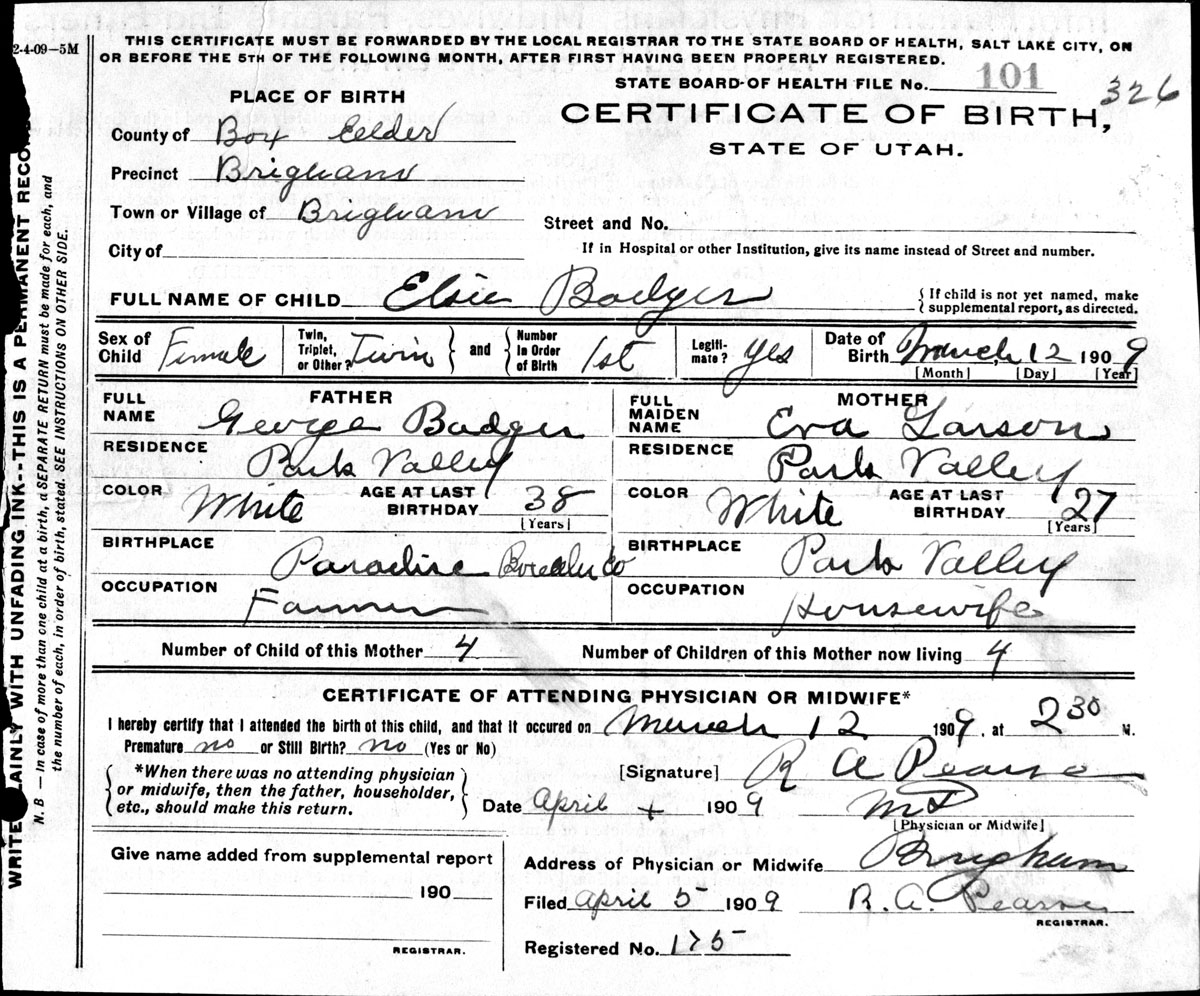 2-4-09—5M
THIS CERTIFICATE MUST BE FORWARDED BY THE LOCAL REGISTRAR TO THE STATE BOARD OF HEALTH, SALT LAKE CITY, ON
OR BEFORE THE 5TH OF THE FOLLOWING MONTH, AFTER FIRST HAVING BEEN PROPERLY REGISTERED.
STATE BOARD OF HEALTH FILE No. 101
326
PLACE OF BIRTH
CERTIFICATE OF BIRTH,
STATE OF UTAH.
County of Box Eelder
Precinct Brigham
Town or Village of Brigham
Street and No.
City of
If in Hospital or other Institution, give its name instead of Street and number.
FULL NAME OF CHILD Elsie Badger
{ If child is not yet named, make
supplemental report, as directed.
Sex of Child Female
Twin, Triplet, or Other? Twin
and
Number in Order of Birth 1st
Legiti-mate? Yes
Date of Birth March 12 1909
[Month] [Day] [Year]
FATHER
FULL NAME George Badger
RESIDENCE Park Valley
COLOR White AGE AT LAST BIRTHDAY 38
[Years]
BIRTHPLACE Paradise
OCCUPATION Farmer
MOTHER
FULL MAIDEN NAME Eva Larson
RESIDENCE Park Valley
COLOR White AGE AT LAST BIRTHDAY 27
[Years]
BIRTHPLACE Park Valley
OCCUPATION Housewife
Number of Child of this Mother 4 Number of Children of this Mother now living 4
CERTIFICATE OF ATTENDING PHYSICIAN OR MIDWIFE*
I hereby certify that I attended the birth of this child, and that it occured on March 12 1909, at 2 30 M.
Premature no or Still Birth? no (Yes or No)
*When there was no attending physician
or midwife, then the father, householder,
etc., should make this return.
[Signature] R A Pearse
Date April 1909 MD
[Physician or Midwife]
Give name added from supplemental report
190
REGISTRAR.
Address of Physician or Midwife Brigham
Filed April 5 1909 R. A. Pearse
REGISTRAR.
Registered No.
WRITE PLAINLY WITH UNFADING INK--THIS IS A PERMANENT RECORD
N. B — In case of more than one child at a birth, a SEPARATE RETURN must be made for each, and
the number of each, in order of birth, stated. SEE INSTRUCTIONS ON OTHER SIDE.